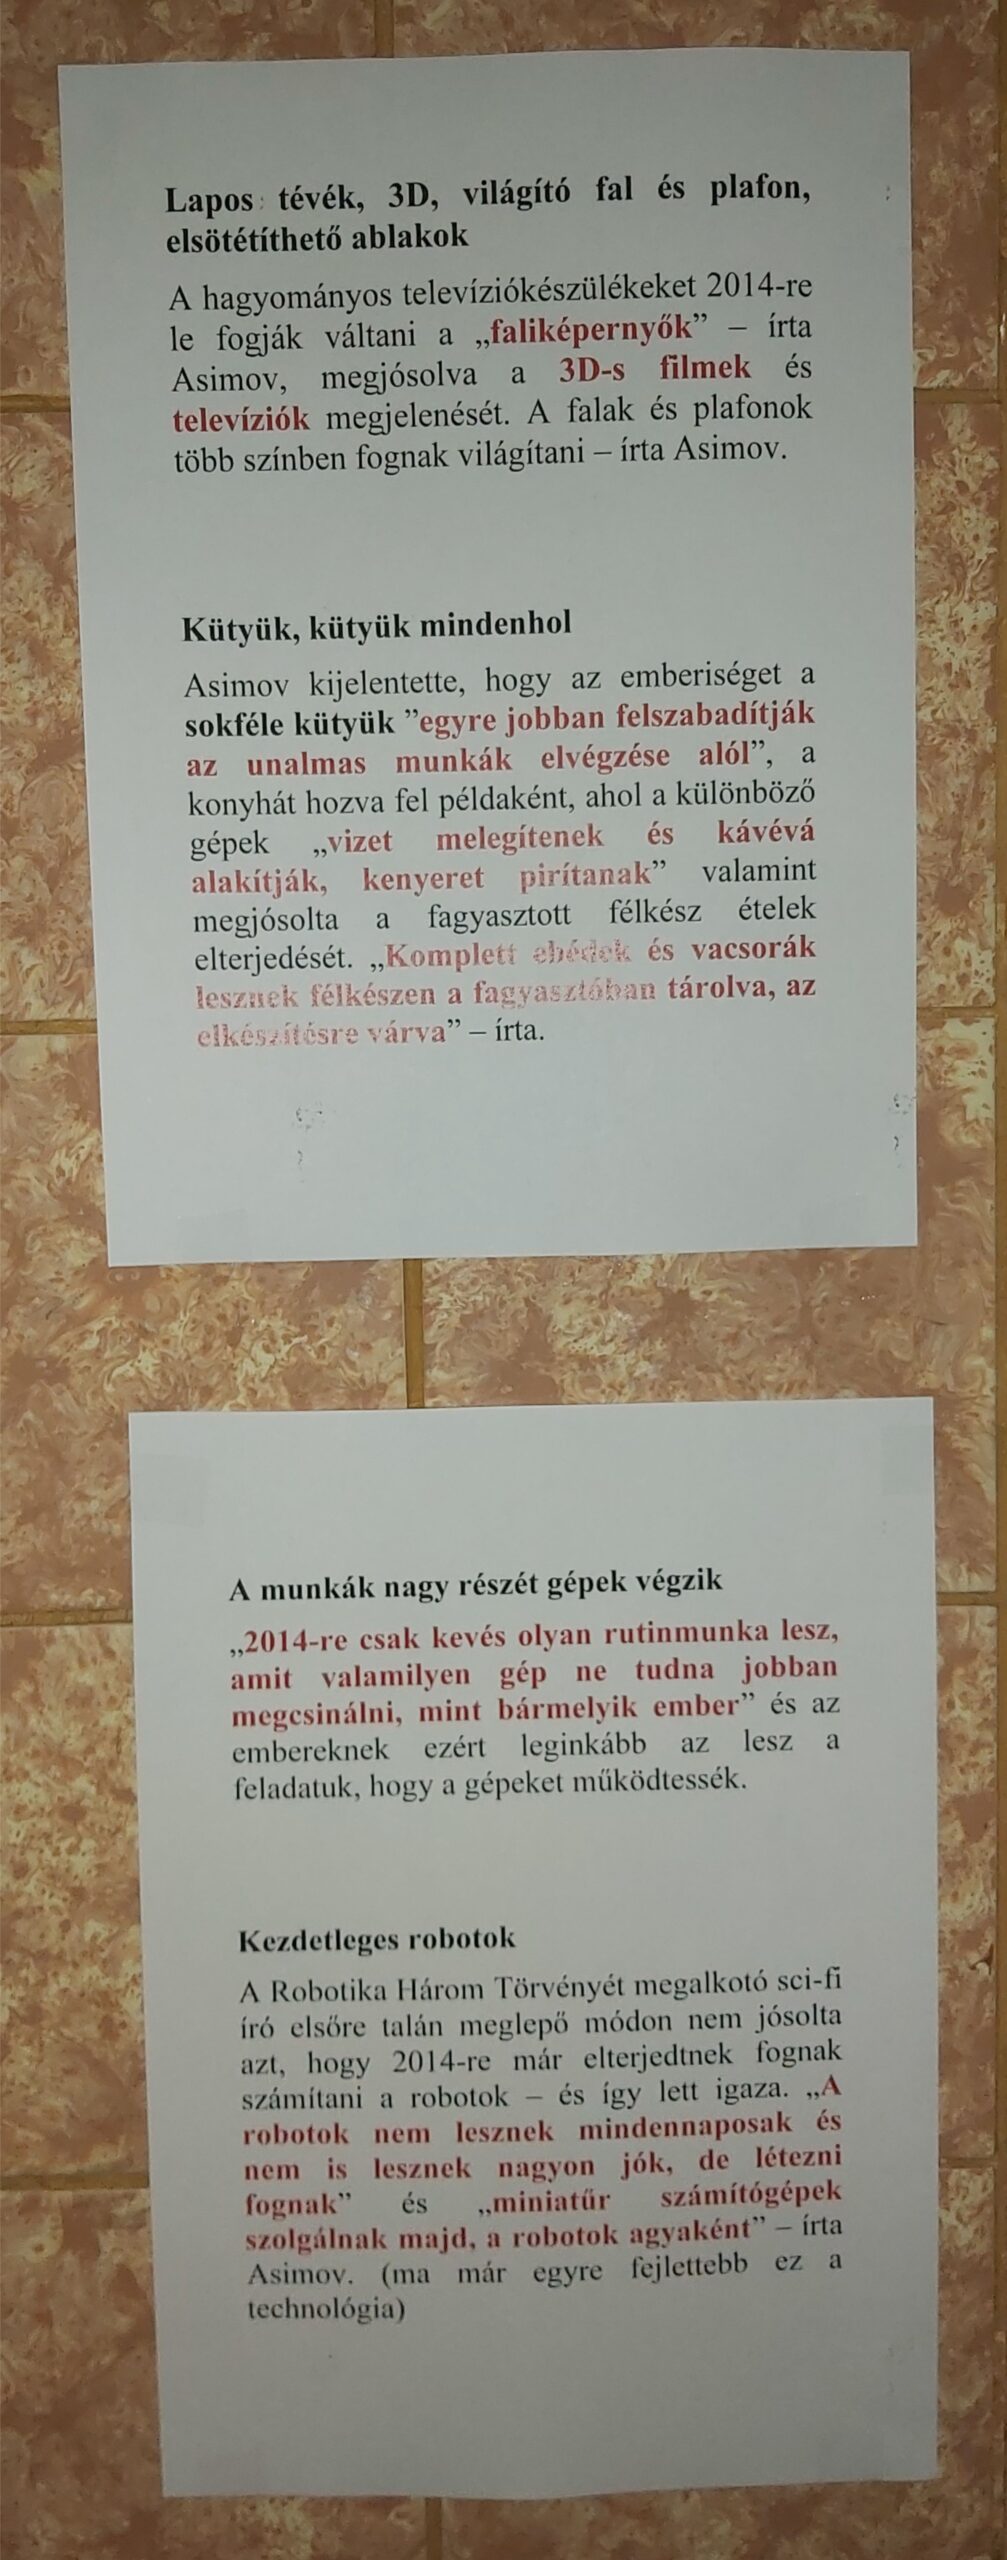 Lapos tévék, 3D, világító fal és plafon,
elsötétíthető ablakok
A hagyományos televíziókészülékeket 2014-re
le fogják váltani a „faliképernyők” – írta
Asimov, megjósolva a 3D-s filmek és
televíziók megjelenését. A falak és plafonok
több színben fognak világítani – írta Asimov.
Kütyük, kütyük mindenhol
Asimov kijelentette, hogy az emberiséget a
sokféle kütyük ”egyre jobban felszabadítják
az unalmas munkák elvégzése alól”, a
konyhát hozva fel példaként, ahol a különböző
gépek „vizet melegítenek és kávévá
alakítják, kenyeret pirítanak” valamint
megjósolta a fagyasztott félkész ételek
elterjedését. „Komplett ebédek és vacsorák
lesznek félkészen a fagyasztóban tárolva, az
elkészítésre várva” – írta.
A munkák nagy részét gépek végzik
„2014-re csak kevés olyan rutinmunka lesz,
amit valamilyen gép ne tudna jobban
megcsinálni, mint bármelyik ember” és az
embereknek ezért leginkább az lesz a
feladatuk, hogy a gépeket működtessék.
Kezdetleges robotok
A Robotika Három Törvényét megalkotó sci-fi
író elsőre talán meglepő módon nem jósolta
azt, hogy 2014-re már elterjedtnek fognak
számítani a robotok – és így lett igaza. „A
robotok nem lesznek mindennaposak és
nem is lesznek nagyon jók, de létezni
fognak” és „miniatűr számítógépek
szolgálnak majd, a robotok agyaként” – írta
Asimov. (ma már egyre fejlettebb ez a
technológia)